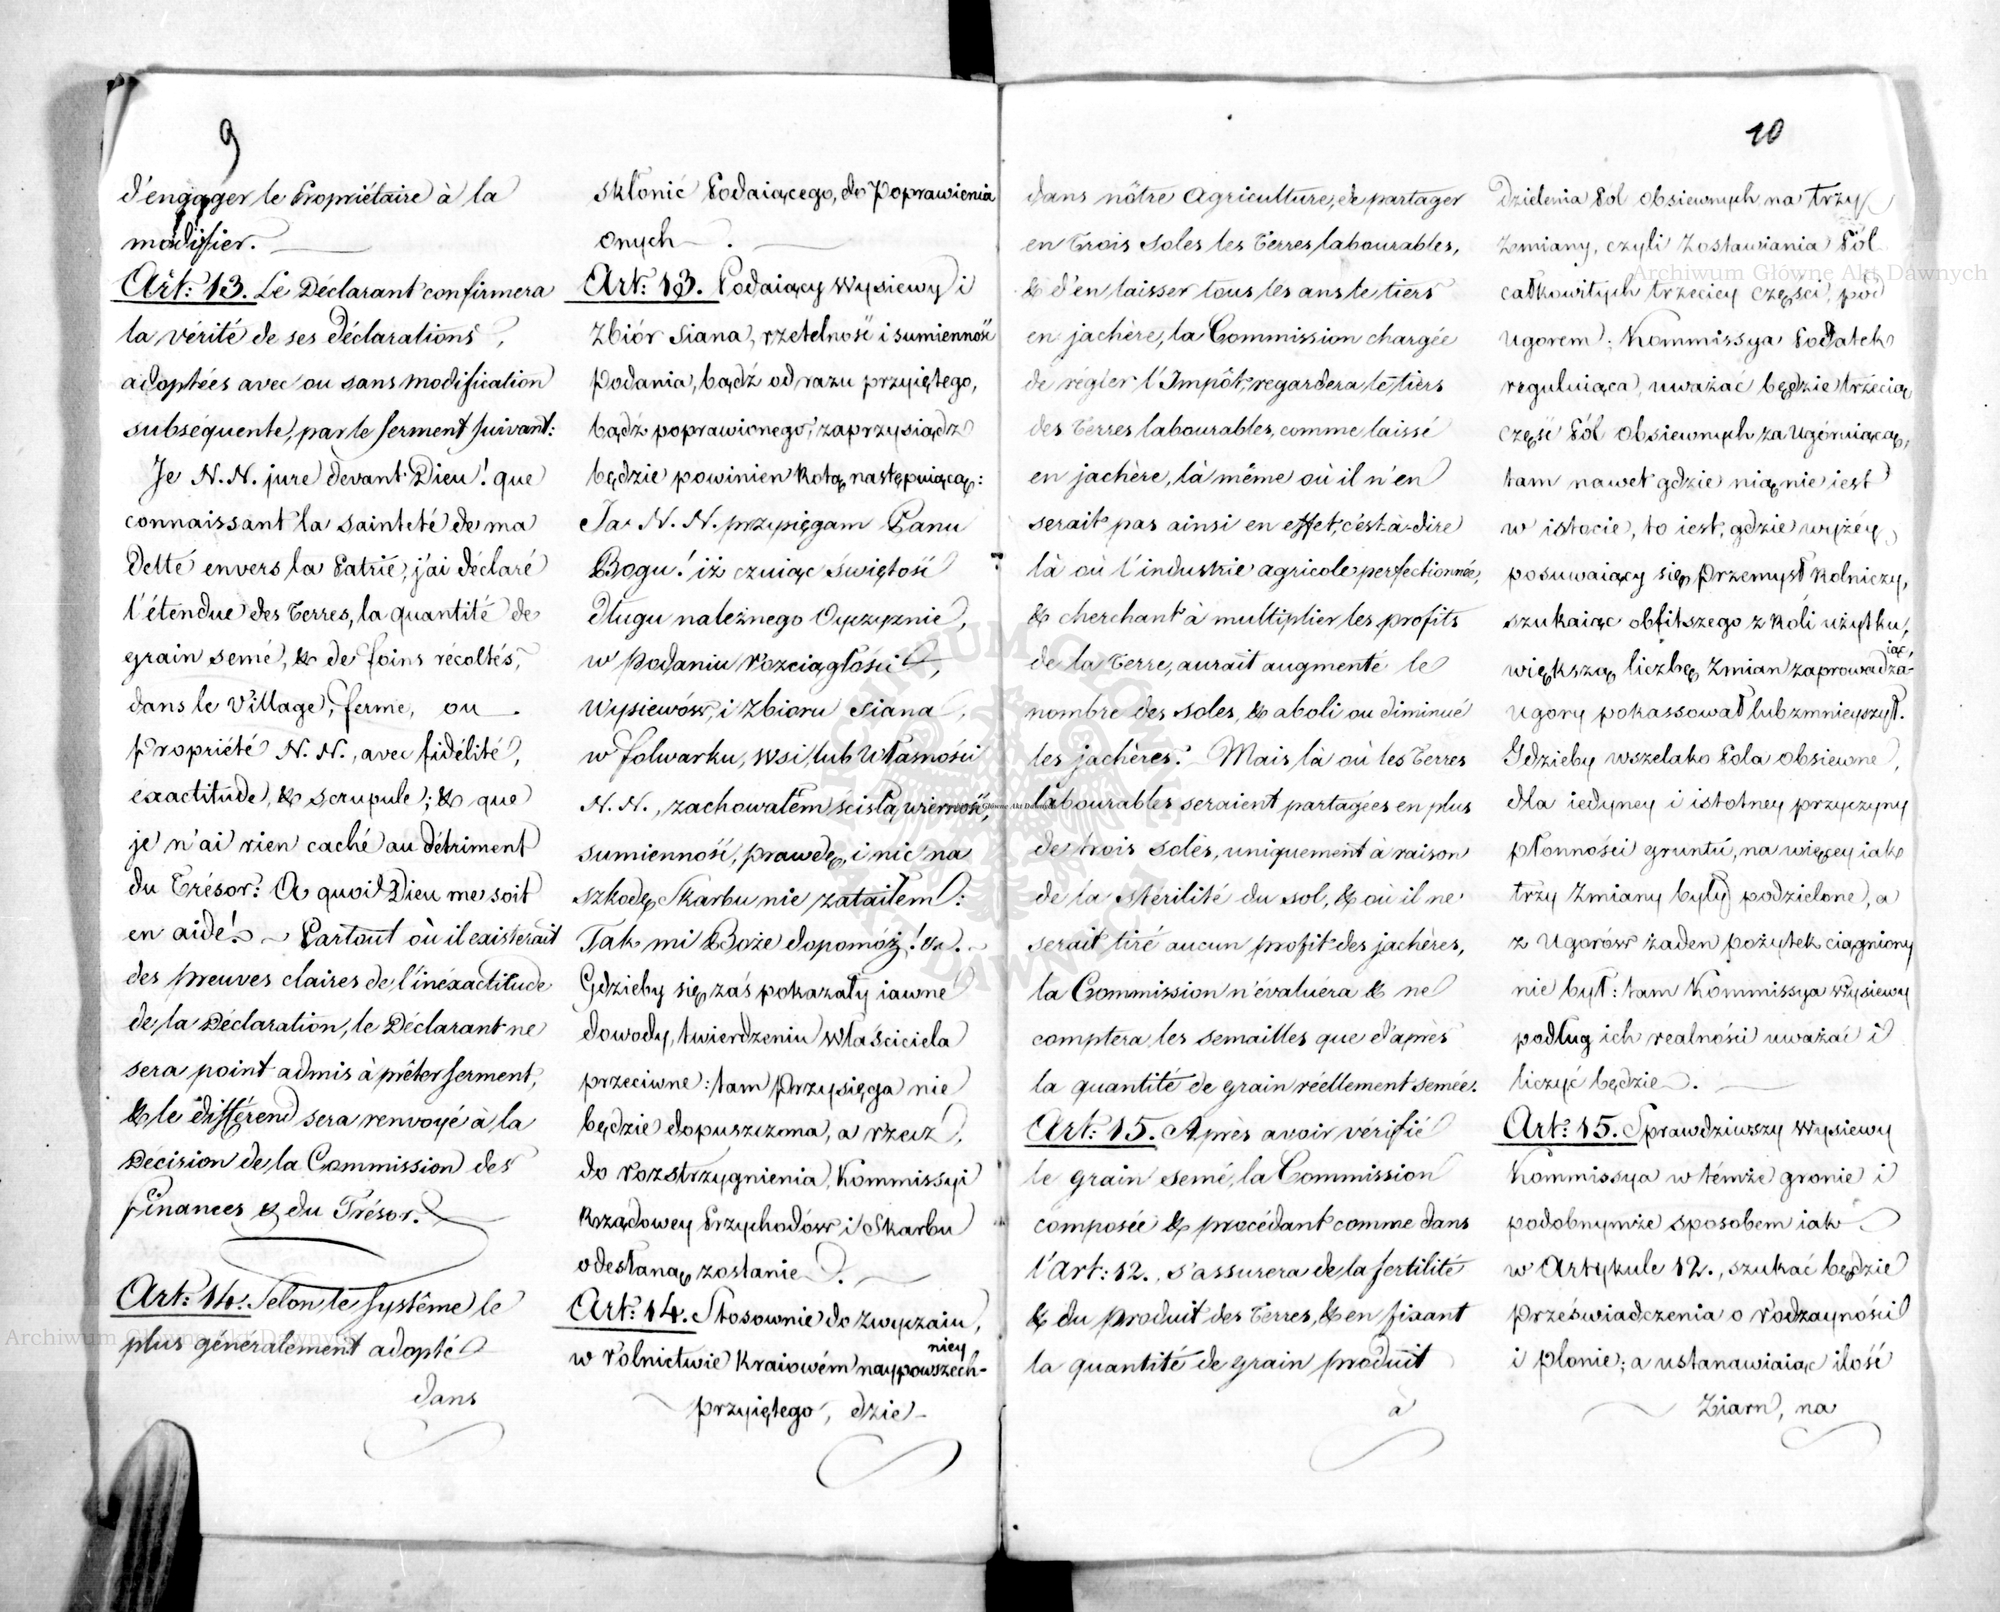 9
d'engager le Propriétaire à la
modifier.
Art: 13. Le Déclarant confirmera
la vérité de ses déclarations,
adoptées avec ou sans modification
subséquente, par le serment suivant:
Je N. N. jure devant Dieu! que
connaissant la sainteté de ma
Dette envers la Patrie, j'ai déclaré
l'étendue des Terres, la quantité de
grain semé, & de foins récoltés,
dans le Village, ferme, ou
Propriété N. N., avec fidélité,
exactitude, & scrupule; & que
je n'ai rien caché au détriment
du Trésor: A quoi Dieu me soit
en aide! Partout où il existerait
des preuves claires de l'inéxactitude
de la Déclaration, le Déclarant ne
sera point admis à prêter serment,
& le différend sera renvoyé à la
Décision de la Commission des
Finances & du Trésor.
Art: 14. Selon le Systême le
plus généralement adopté
dans
skłonić Podaiącego, do Poprawienia
onych.
Art: 13. Podaiący Wysiewy i
Zbiór Siana, rzetelność i sumienność
Podania, bądź od razu przyiętego,
bądź poprawionego, zaprzysiądz
będzie powinien Rotą następuiącą:
Ja N. N. przysięgam Panu
Bogu! iż czuiąc świętość
Długu należnego Oyczyznie,
w Podaniu rozciągłości,
Wysiewów, i Zbioru Siana,
w folwarku, wsi, lub Własności
N. N., zachowałem ścisłą wierność,
sumienność, prawdę, i nic na
szkodę Skarbu nie zataiłem:
Tak mi Boże dopomóż! &a.
Gdzieby się zaś pokazały iawne
dowody, twierdzeniu Właściciela
przeciwne: tam Przysięga nie
będzie dopuszczona, a rzecz,
do rozstrzygnienia Kommissyi
Rządowey Przychodów i Skarbu
odesłaną zostanie.
Art: 14. Stosownie do Zwyczaiu,
w Rolnictwie Kraiowém naypowszech-
niey
przyiętego, dzie-
10
dans nôtre Agriculture, de partager
en Trois Soles les Terres labourables,
& d'en laisser tous les ans le tiers
en jachère, la Commission chargée
de régler l'Impôt, regardera le tiers
des Terres labourables, comme laissé
en jachère, là même où il n'en
serait pas ainsi en effet, c'est-à-dire
là où l'industrie agricole perfectionnée,
& cherchant à multiplier les profits
de la Terre, aurait augmenté le
nombre des soles, & aboli ou diminué
les jachères. Mais là où les Terres
labourables seraient partagées en plus
de trois soles, uniquement à raison
de la stérilité du sol, & où il ne
serait tiré aucun profit des jachères,
la Commission n'évaluera & ne
comptera les semailles que d'après
la quantité de grain réellement semée.
Art: 15. Après avoir vérifié
le grain semé, la Commission
composée & procédant comme dans
l'Art: 12., s'assurera de la fertilité
& du Produit des Terres, & en fixant
la quantité de grain produit
à
dzielenia Pól obsiewnych na trzy
Zmiany, czyli Zostawiania Pól
całkowitych trzeciey części, pod
Ugorem; Kommissya Podatek
reguluiąca, uważać będzie trzecią
część Pól obsiewnych za Ugóruiącą,
tam nawet gdzie nią nie iest
w istocie, to iest, gdzie wyżéy
posuwaiący się Przemysł Rolniczy,
szukaiąc obfitszego z Roli użytku,
większą liczbę Zmian zaprowadza-
iąc,
Ugory pokassował lub zmnieyszył.
Gdzieby wszelako Pola obsiewne,
dla iedyney i istotney przyczyny
płonności gruntu, na więcey iak
trzy Zmiany były podzielone, a
z Ugorów żaden pożytek ciągniony
nie był: tam Kommissya Wysiewy
podług ich realności uważać i
liczyć będzie.
Art: 15. Sprawdziwszy Wysiewy
Kommissya w témże gronie i
podobnymże sposobem iak
w Artykule 12., szukać będzie
przéświadczenia o rodzayności
i plonie; a ustanawiaiąc ilość
Ziarn, na
Archiwum Główne Akt Dawnych
Archiwum Główne Akt Dawnych
Archiwum Główne Akt Dawnych